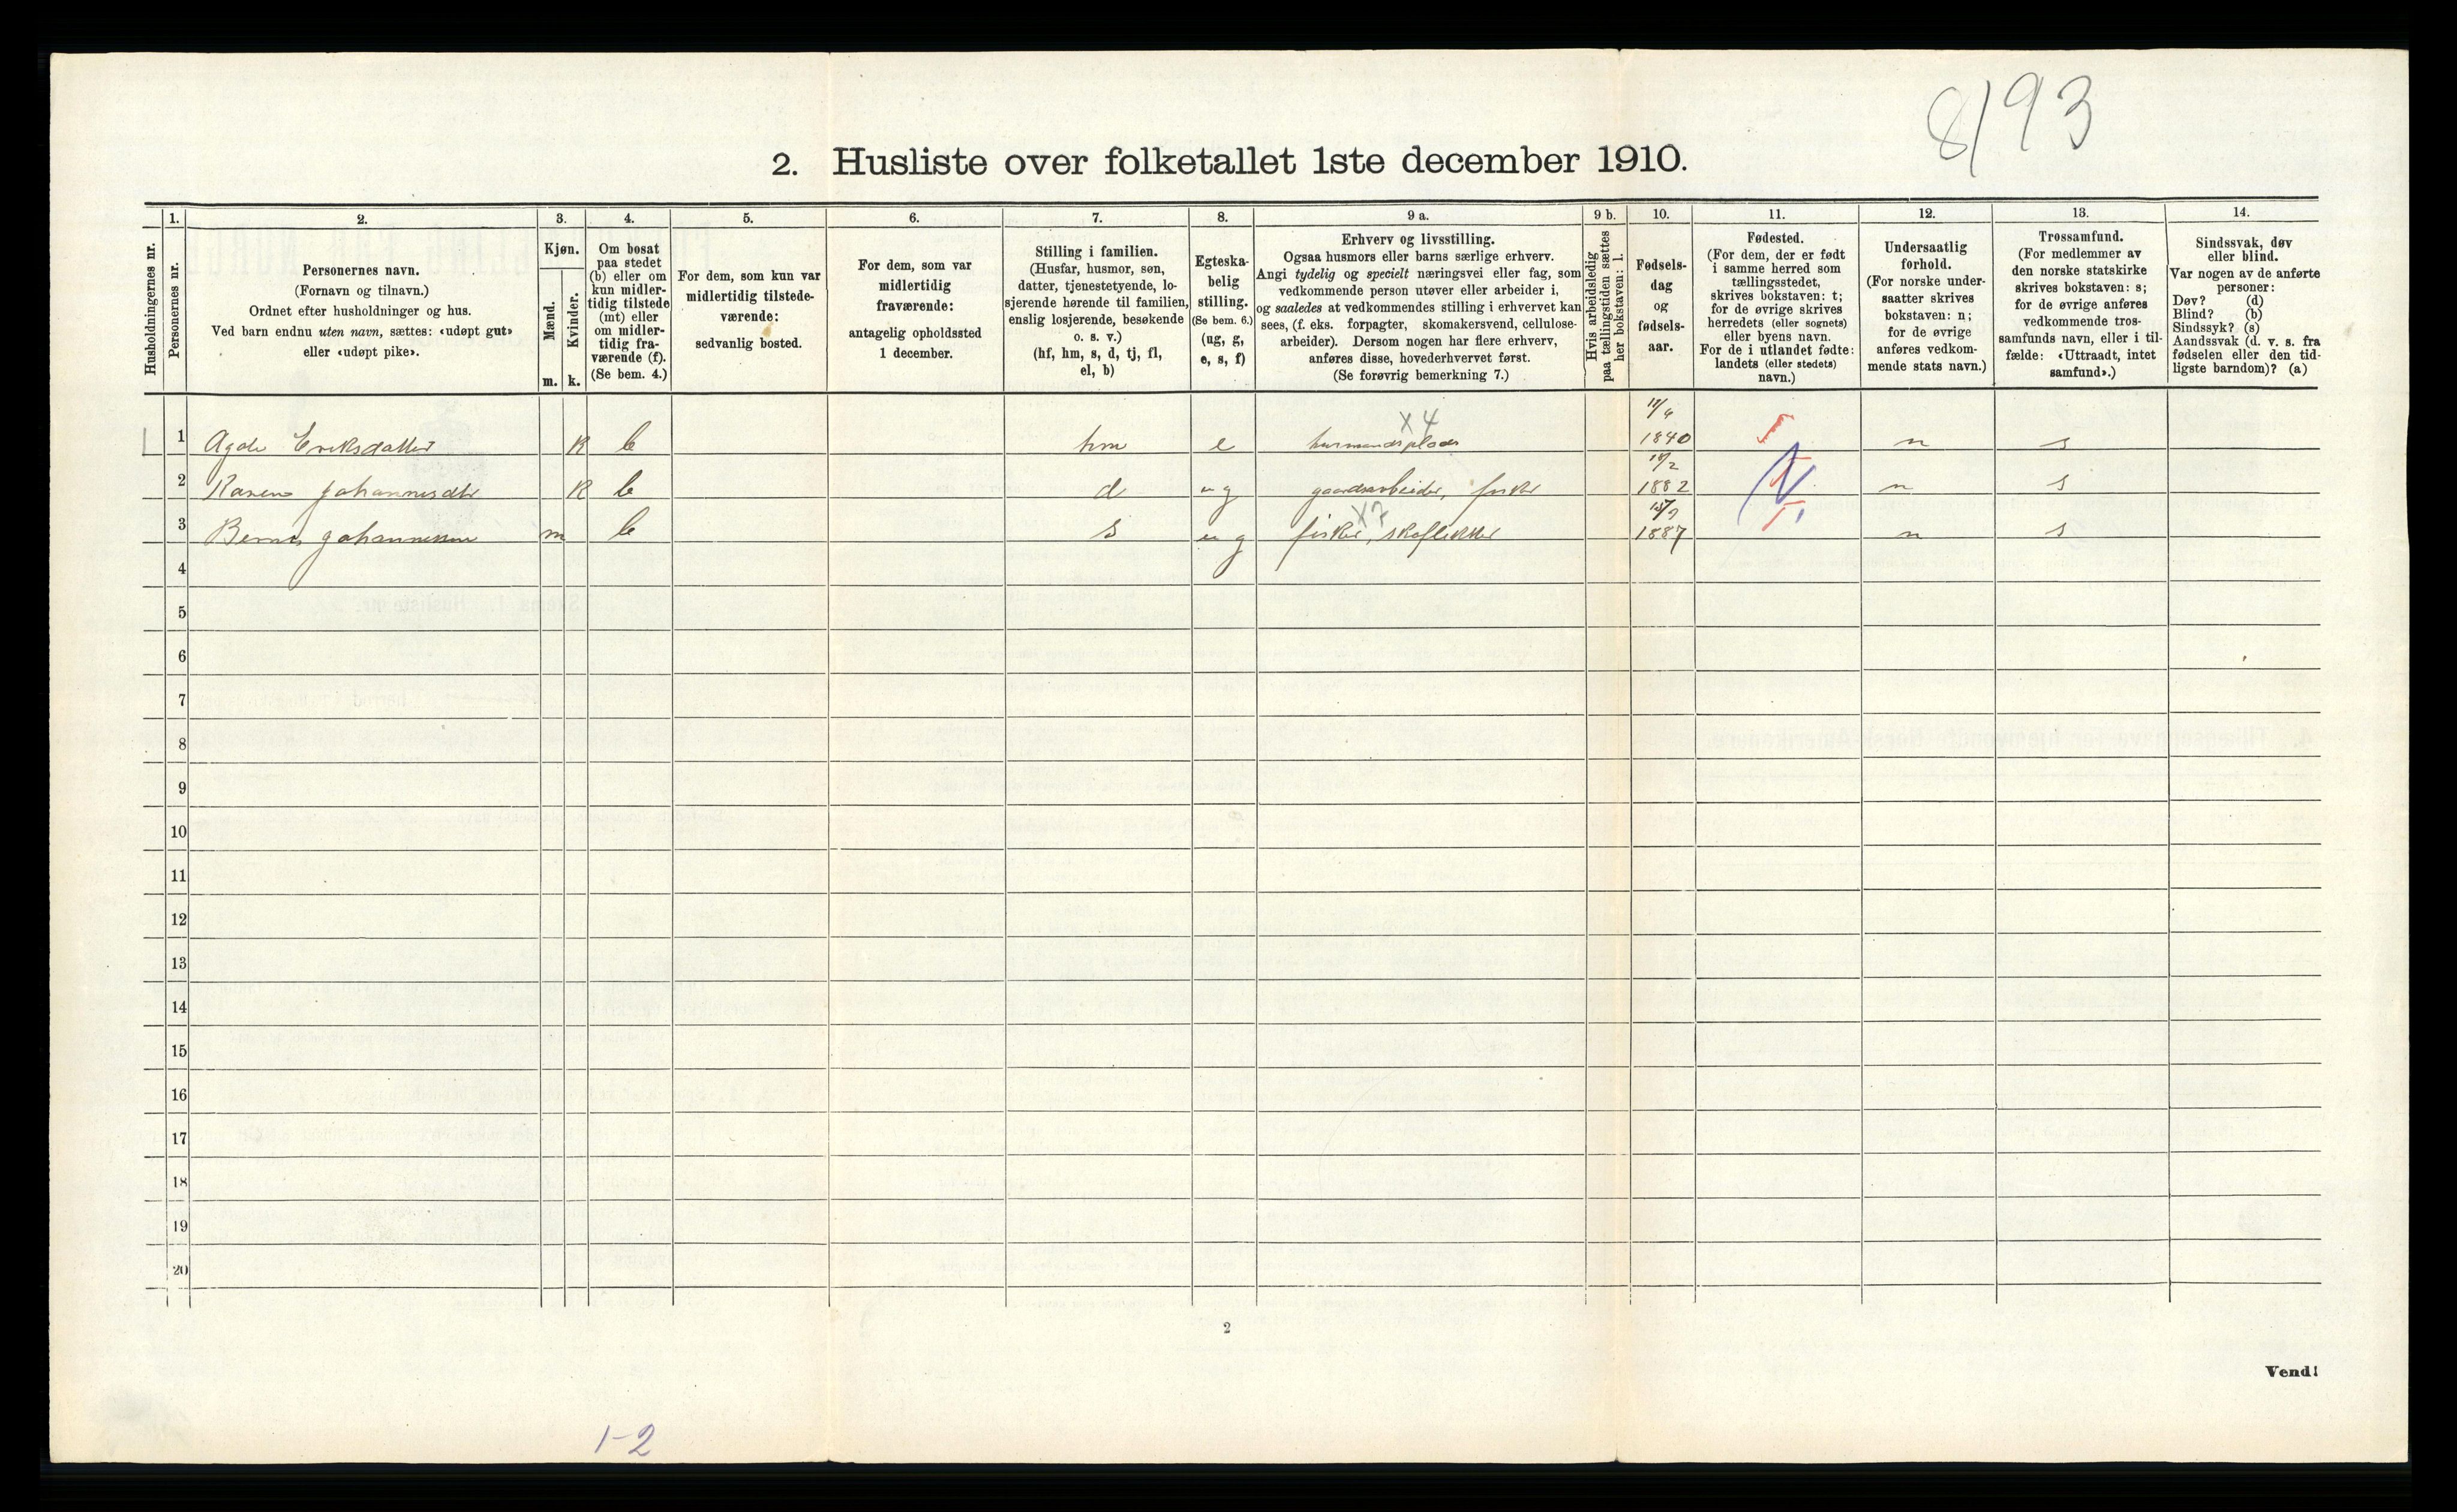 8/93
2. Husliste over folketallet 1ste december 1910.
1. 2. 3. 4. 5. 6. 7. 8. 9 a. 9 b. 10. 11. 12. 13. 14.
Husholdningernes nr.
Personernes nr.
Personernes navn.
(Fornavn og tilnavn.)
Ordnet efter husholdninger og hus.
Ved barn endnu uten navn, sættes: «udøpt gut»
eller «udøpt pike».
Kjøn.
Mænd.
Kvinder.
m. k.
Om bosat
paa stedet
(b) eller om
kun midler-
tidig tilstede
(mt) eller
om midler-
tidig fra-
værende (f).
(Se bem. 4.)
For dem, som kun var
midlertidig tilstede-
værende:
sedvanlig bosted.
For dem, som var
midlertidig
fraværende:
antagelig opholdssted
1 december.
Stilling i familien.
(Husfar, husmor, søn,
datter, tjenestetyende, lo-
sjerende hørende til familien,
enslig losjerende, besøkende
o. s. v.)
(hf, hm, s, d, tj, fl,
el, b)
Egteska-
belig
stilling.
(Se bem. 6.)
(ug, g,
e, s, f)
Erhverv og livsstilling.
Ogsaa husmors eller barns særlige erhverv.
Angi tydelig og specielt næringsvei eller fag, som
vedkommende person utøver eller arbeider i,
og saaledes at vedkommendes stilling i erhvervet kan
sees, (f. eks. forpagter, skomakersvend, cellulose-
arbeider). Dersom nogen har flere erhverv,
anføres disse, hovederhvervet først.
(Se forøvrig bemerkning 7.)
Hvis arbeidsledig
paa tællingstiden sættes
her bokstaven: l.
Fødsels-
dag
og
fødsels-
aar.
Fødested.
(For dem, der er født
i samme herred som
tællingsstedet,
skrives bokstaven: t;
for de øvrige skrives
herredets (eller sognets)
eller byens navn.
For de i utlandet fødte:
landets (eller stedets)
navn.)
Undersaatlig
forhold.
(For norske under-
saatter skrives
bokstaven: n;
for de øvrige
anføres vedkom-
mende stats navn.)
Trossamfund.
(For medlemmer av
den norske statskirke
skrives bokstaven: s;
for de øvrige anføres
vedkommende tros-
samfunds navn, eller i til-
fælde: «Uttraadt, intet
samfund».)
Sindssvak, døv
eller blind.
Var nogen av de anførte
personer:
Døv? (d)
Blind? (b)
Sindssyk? (s)
Aandssvak (d. v. s. fra
fødselen eller den tid-
ligste barndom)? (a)
x4
1 Eriksdatter k b hm e husmandsplads 1840 n s
2 Johannesdtr k b d ug gaardsarbeider, fisker 1882 n s
x7
3 Johannessen m b s ug fisker, skoflikker 1887 n s
4
5
6
7
8
9
10
11
12
13
14
15
16
17
18
19
20
2
Vend!
1-2